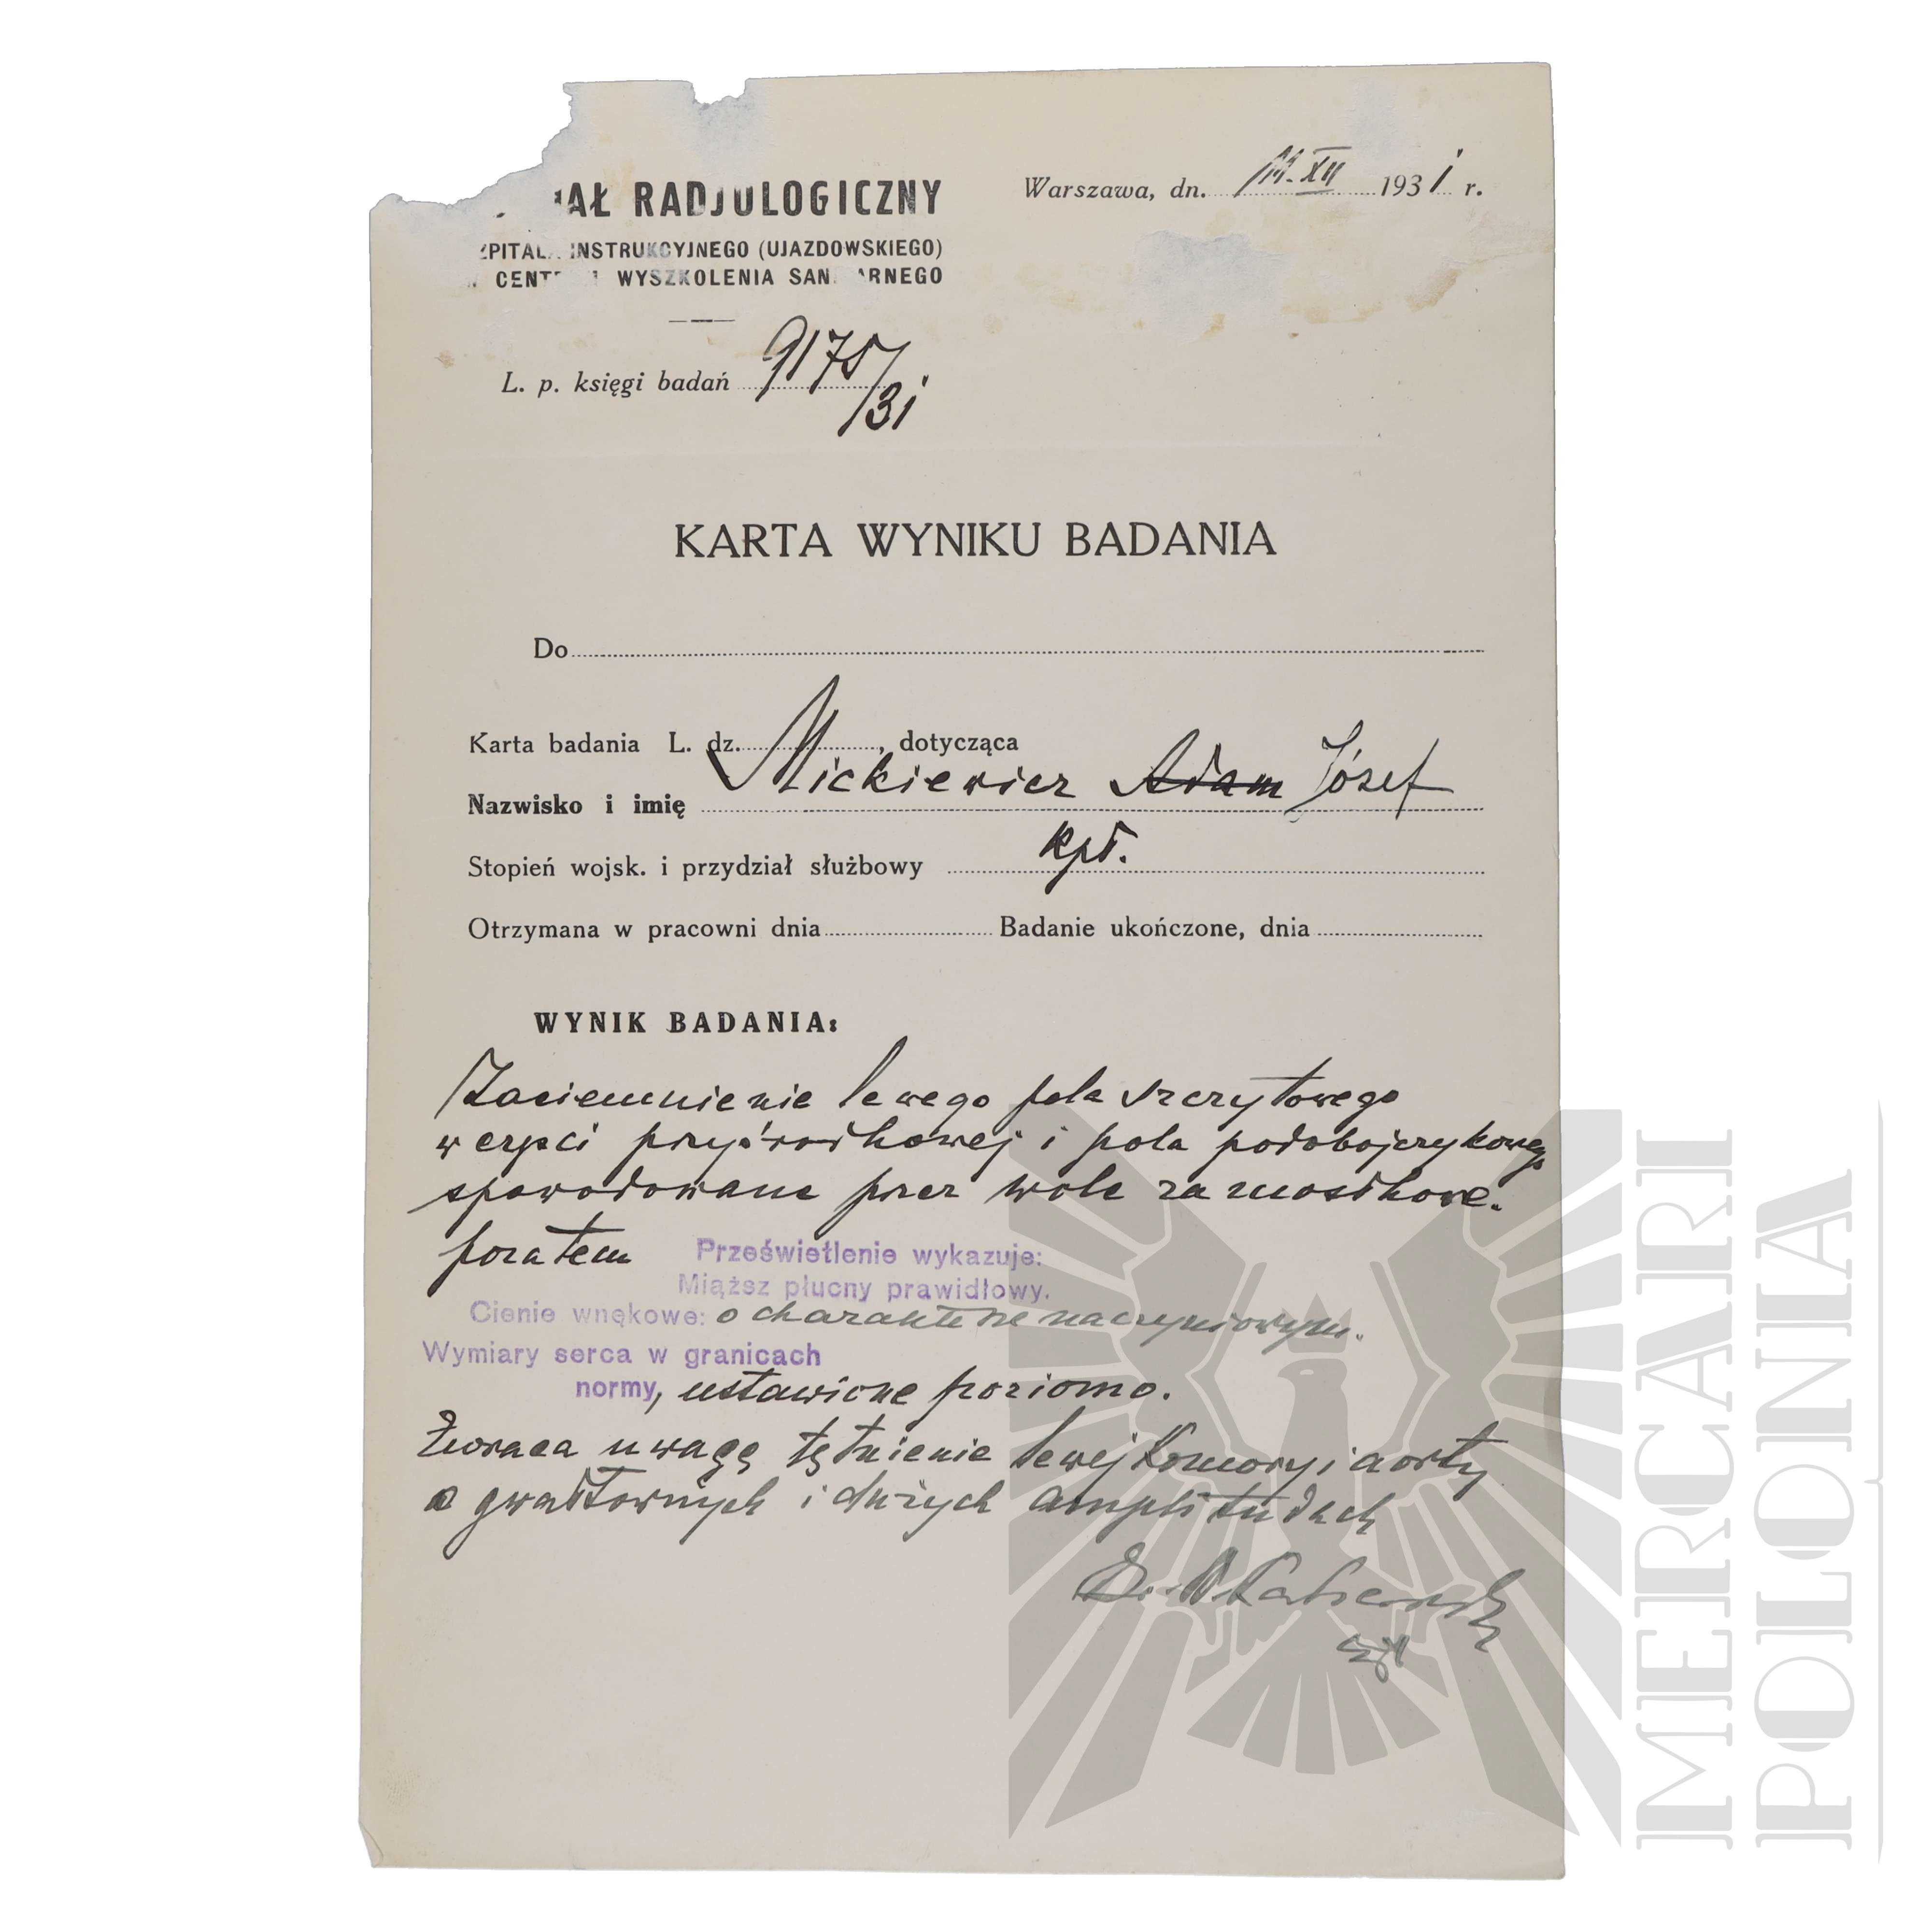 IAŁ RADJOLOGICZNY
ZPITALA INSTRUKCYJNEGO (UJAZDOWSKIEGO)
CENT WYSZKOLENIA SAN ARNEGO
Warszawa, dn. 11.XII 1931 r.
L. p. księgi badań 9175/31
KARTA WYNIKU BADANIA
Do
Karta badania L. dz. , dotycząca
Nazwisko i imię Mickiewicz Adam Józef
Stopień wojsk. i przydział służbowy kpt.
Otrzymana w pracowni dnia Badanie ukończone, dnia
WYNIK BADANIA:
Zaciemnienie lewego pola szczytowego
w części przyśrodkowej i pola podobojczykowego
spowodowane przez wole zamostkowe.
pozatem Prześwietlenie wykazuje:
Miąższ płucny prawidłowy.
Cienie wnękowe: o charakterze naczyniowym.
Wymiary serca w granicach
normy, ustawione poziomo.
Zwraca uwagę tętnienie lewej komory i aorty
o gwałtownych i dużych amplitudach
MERCARI
POLONIA